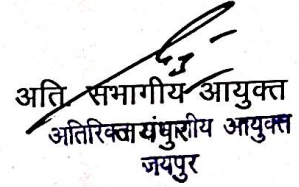 अति. सभागीय आयुक्त
अतिरिक्त जयपुर गीय आयुक्त
जयपुर